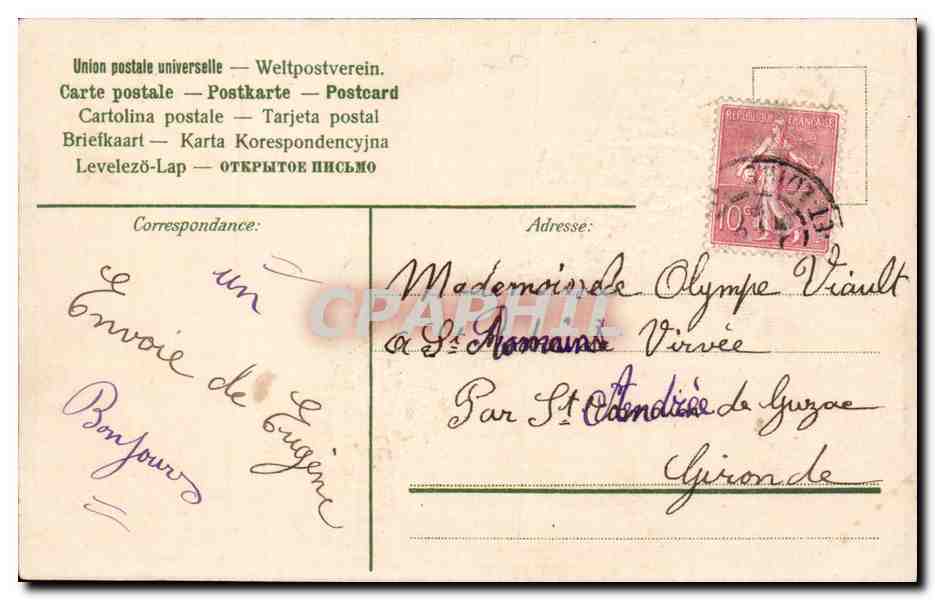 Union postale universelle — Weltpostverein.
Carte postale — Postkarte — Postcard
Cartolina postale — Tarjeta postal
Briefkaart — Karta Korespondencyjna
Levelező-Lap — ОТКРЫТОЕ ПИСЬМО
REPUBLIQUE FRANÇAISE
10 c
Correspondance:
un
Envoie de Eugène
Bonjours
Adresse:
Mademoiselle Olympe Viault
a St Romain Virvée
Par St Andrée de Guzac
Gironde
CPAPHIL